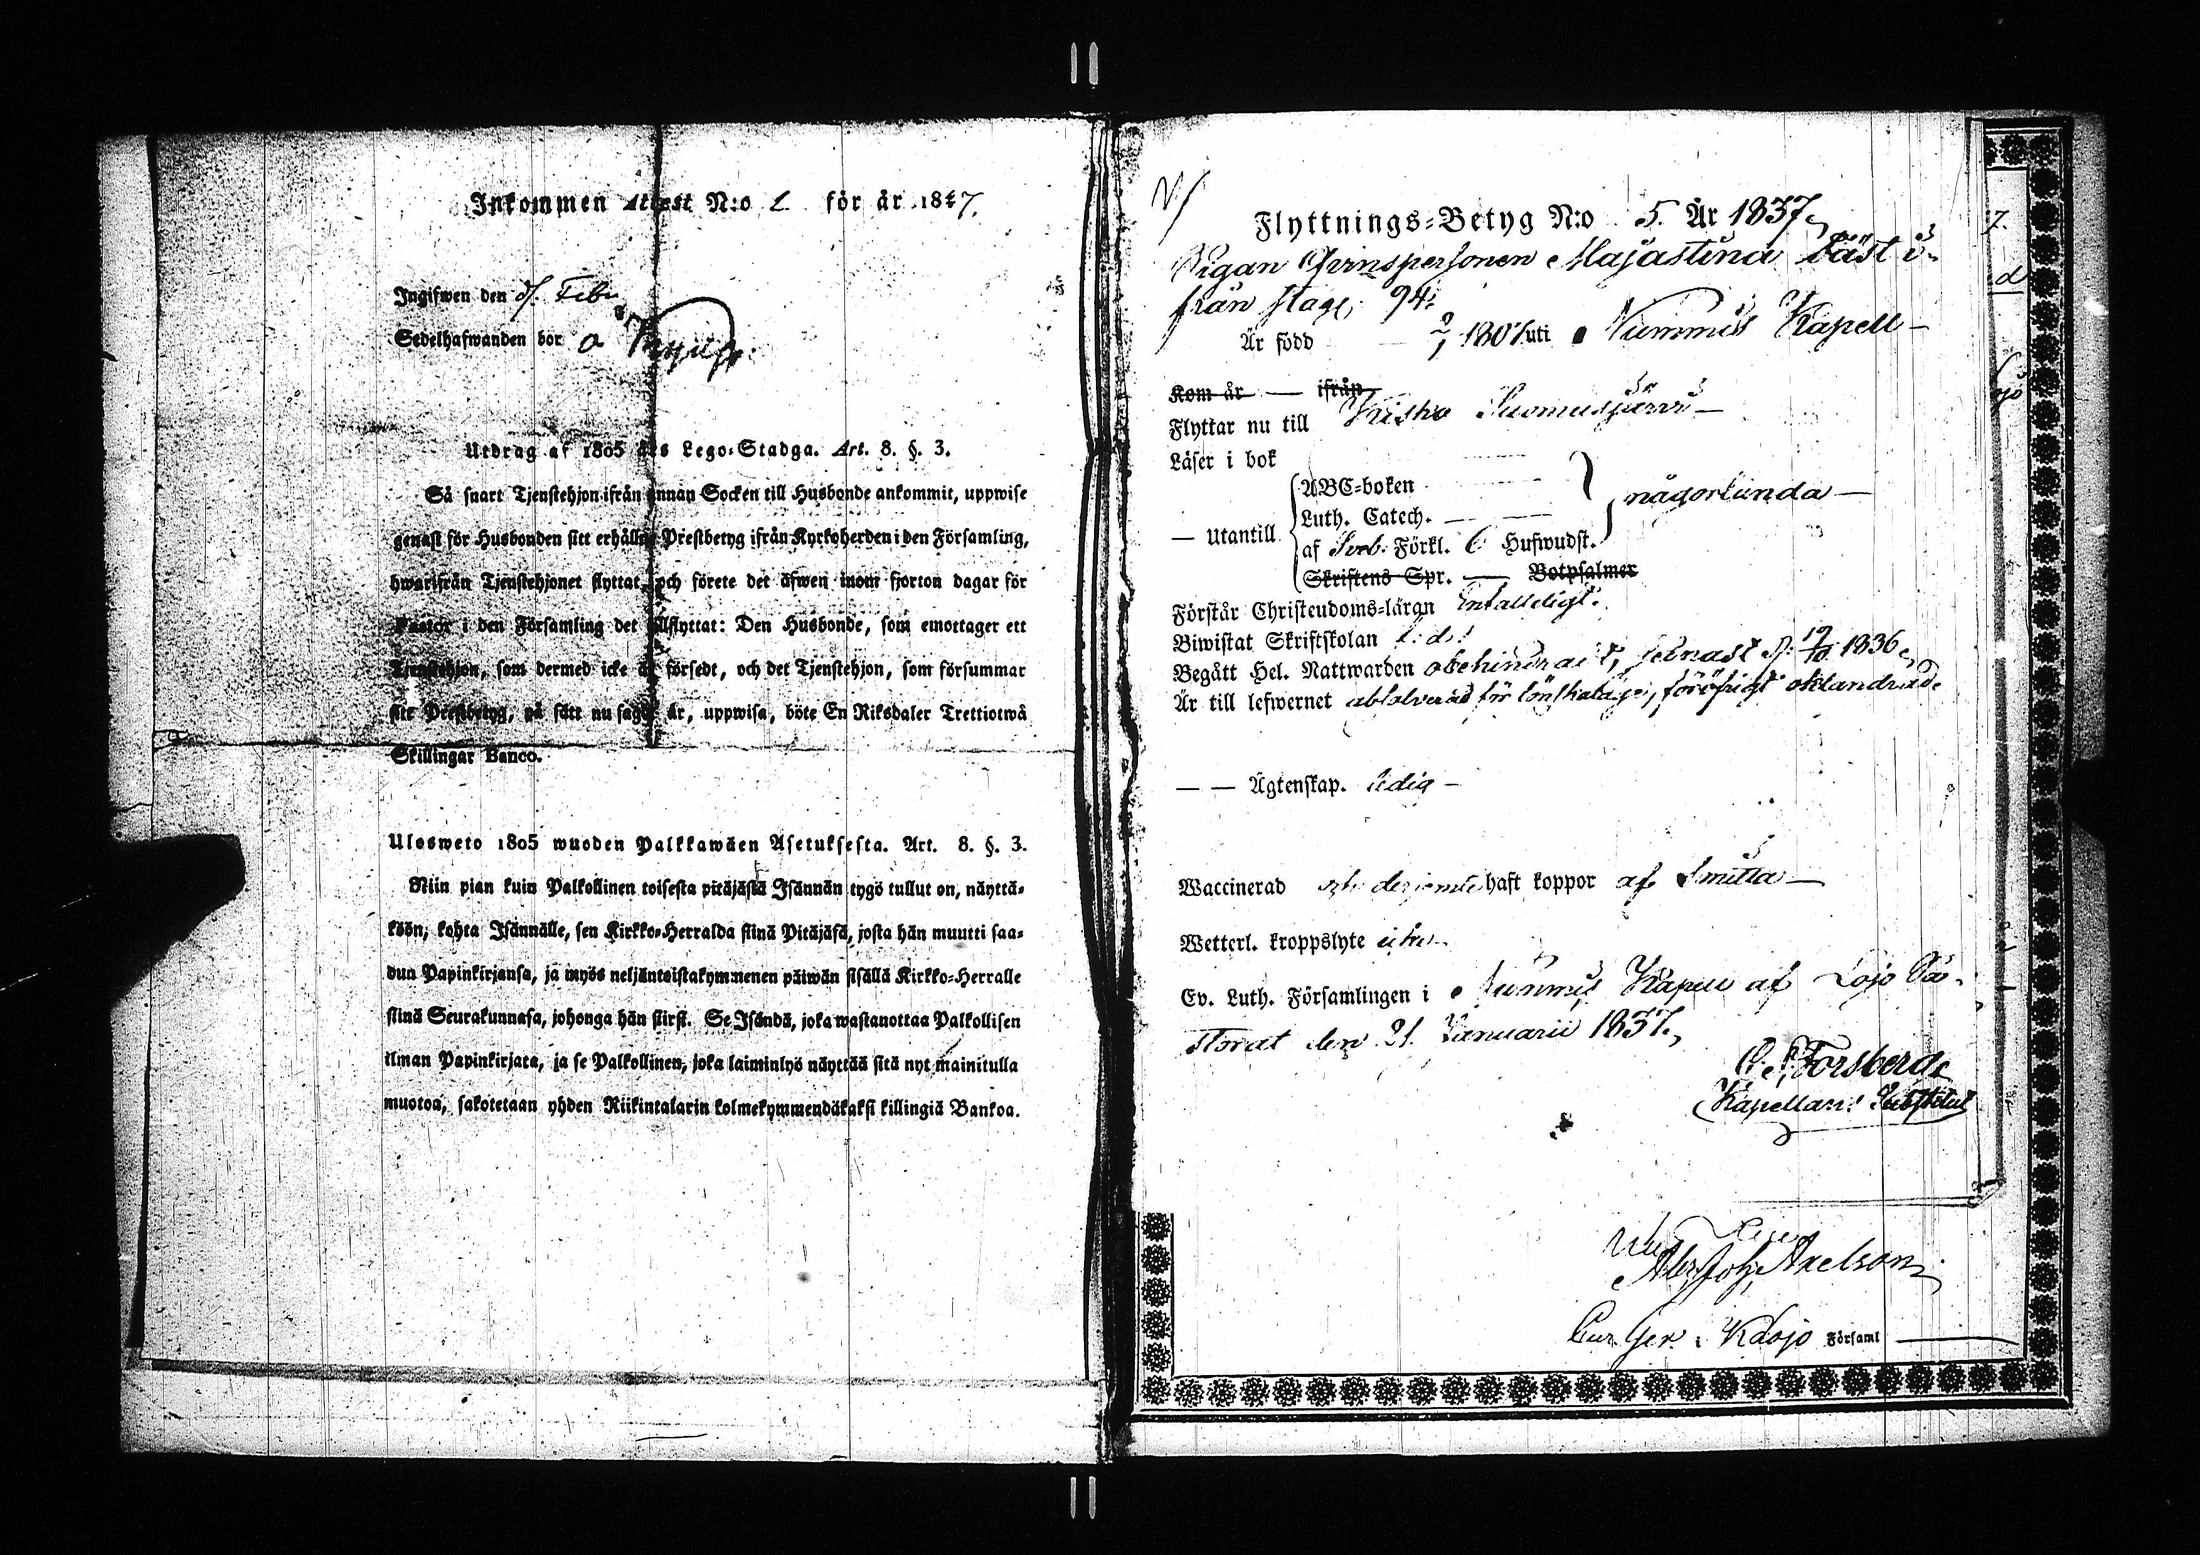 Inkommen Attest N:o för år 1847.
Ingifwen den Febr
Sedelhafwanden bor å
Utdrag af 1805 års Lego-Stadga. Art. 8. §. 3.
Så snart Tjenstehjon ifrån annan Socken till Husbonde ankommit, uppwise
genast för Husbonden sitt erhållne Prestbetyg ifrån Kyrkoherden i den Församling,
hwarifrån Tjenstehjonet flyttat, och förete det äfwen inom fjorton dagar för
Pastor i den Församling det tillflyttat: Den Husbonde, som emottager ett
Tjenstehjon, som dermed icke är försedt, och det Tjenstehjon, som försummar
sitt Prestbetyg, på sätt nu sagdt är, uppwisa, böte En Riksdaler Trettiotwå
Skillingar Banco.
Ulosweto 1805 wuoden Palkkawäen Asetuksesta. Art. 8. §. 3.
Niin pian kuin Palkollinen toisesta pitäjästä Isännän tygö tullut on, näyttä-
köön, kohta Isännälle, sen Kirkko-Herralda siinä Pitäjäsä, josta hän muutti saa-
dun Papinkirjansa, ja myös neljäntoistakymmenen päiwän sisällä Kirkko-Herralle
siinä Seurakunnasa, johonga hän siirsi. Se Isändä, joka wastanottaa Palkollisen
ilman Papinkirjata, ja se Palkollinen, joka laiminlyö näyttää sitä nyt mainitulla
muotoa, sakotetaan yhden Riikintalarin kolmekymmendäkaksi killingiä Bankoa.
Flyttnings-Betyg N:o 5. År 1837,
Pigan Qvinspersonen Majastina
från 94:
Är född 1801 uti Nummis Kapell —
Kom år — ifrån
Flyttar nu till Kisko Suomusjärvi —
Läser i bok
— Utantill
ABC-boken — någorlunda —
Luth. Catech. —
af Sveb. Förkl. 6 Hufwudst.
Skriftens Spr. — Botpsalmer
Förstår Christendoms-läran Enfalleligt.
Biwistat Skriftskolan
Begått Hel. Nattwarden obehindradt, senast d. 19/10 1836,
Är till lefwernet absolverad för lönskaläge, föröfrigt oklandrad.
— — Ägtenskap. ledig —
Waccinerad haft koppor af Smitta —
Wetterl. kroppslyte utan
Ev. Luth. Församlingen i Nummis Kapell af Lojo Pa-
storat den 21. Januarii 1837.,
Forsberg
Kapellans Substitut
Joh. Axelson
Cur. Ger. i K Lojo Församl —
7.
d